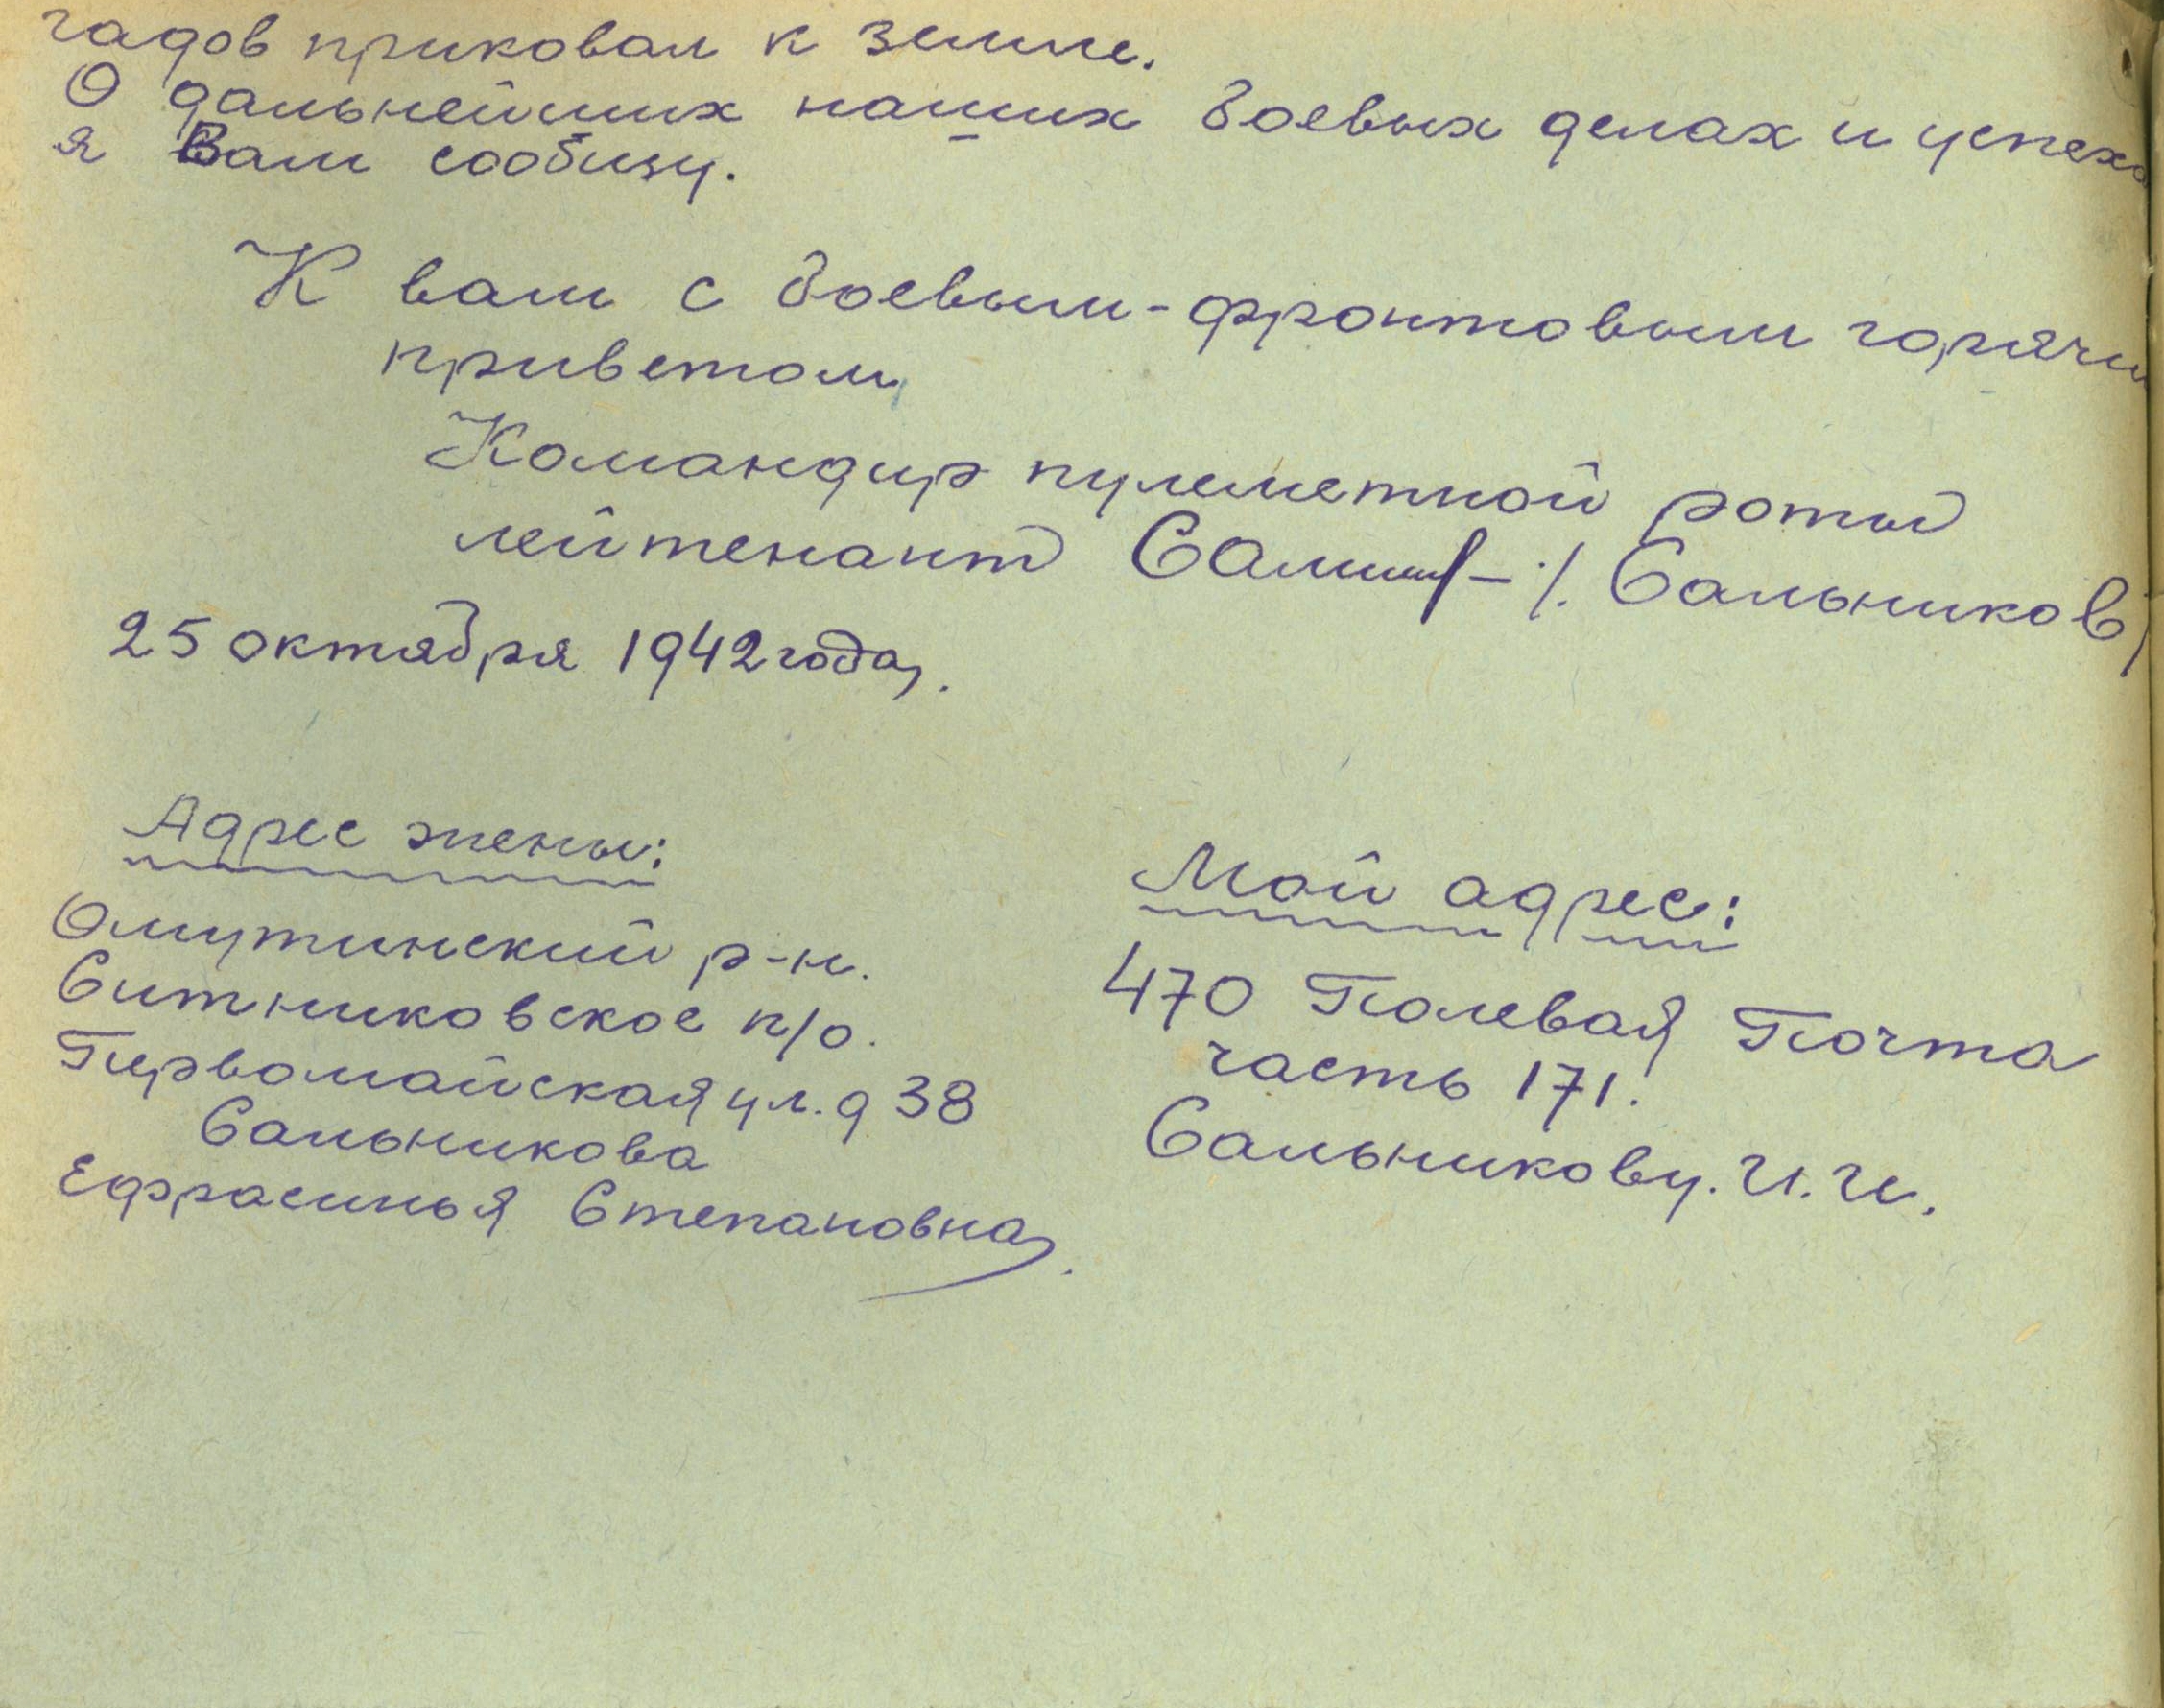 гадов приковал к земле.
О дальнейших наших боевых делах и успеха
я Вам сообщу.
К вам с боевым-фронтовым горячи
приветом,
Командир пулеметной роты
лейтенант /. Сальников/
25 октября 1942 года.
Адрес жены:
Омутинский р-н.
Ситниковское п/о.
Первомайская ул. д 38
Сальникова
Ефрасинья Степановна.
Мой адрес:
470 Полевая Почта
часть 171.
Сальникову. И. И.